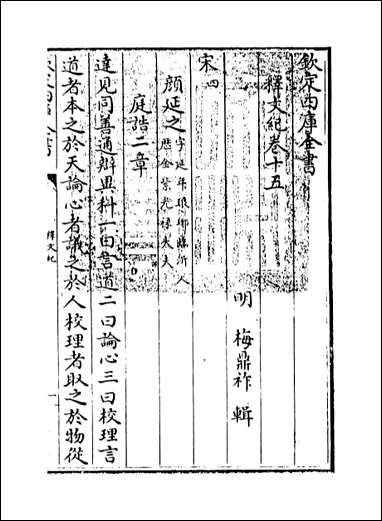 欽定四庫全書
釋文紀卷十五
明 梅鼎祚 輯
宋四
顔延之字延年琅琊臨沂人歴金紫光禄大夫
庭誥二章
達見同善通辯異科一曰言道二曰論心三曰校理言
道者本之於天論心者議之於人校理者取之於物從
釋文紀